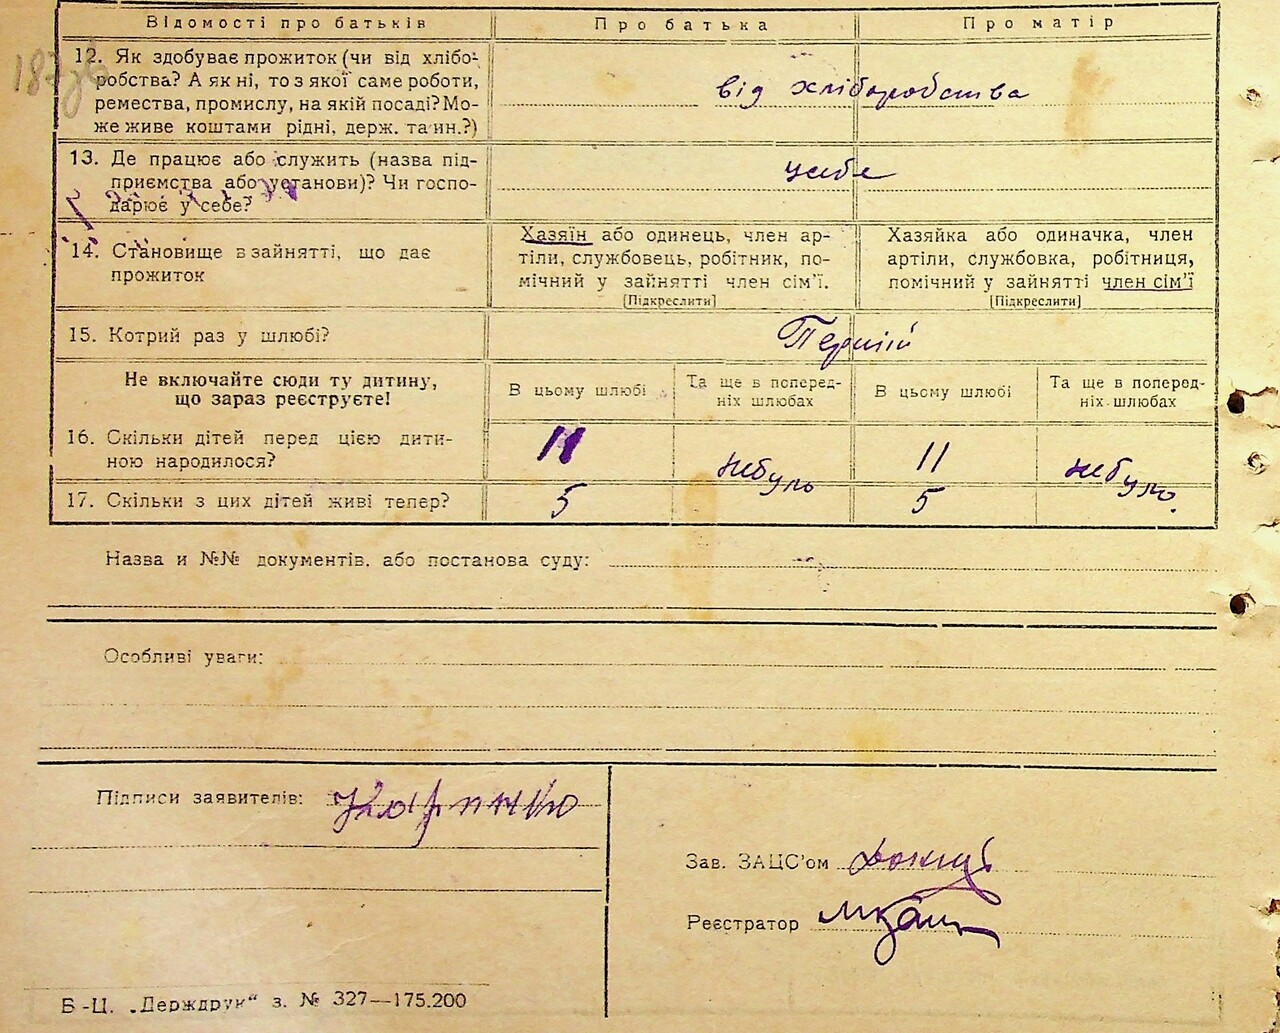 Відомості про батьків Про батька Про матір
12. Як здобуває прожиток (чи від хлібо-
робства? А як ні, то з якої саме роботи,
ремества, промислу, на якій посаді? Мо-
же живе коштами рідні, держ. та ин.?)
від хліборобства
13. Де працює або служить (назва під-
приємства або установи)? Чи госпо-
дарює у себе?
у себе
14. Становище в зайнятті, що дає
прожиток
Хазяїн або одинець, член ар-
тіли, службовець, робітник, по-
мічний у зайнятті член сім'ї.
[Підкреслити]
Хазяйка або одиначка, член
артіли, службовка, робітниця,
помічний у зайнятті член сім'ї
[Підкреслити]
15. Котрий раз у шлюбі?
Перший
Не включайте сюди ту дитину,
що зараз реєструєте!
В цьому шлюбі
Та ще в поперед-
ніх шлюбах
В цьому шлюбі
Та ще в поперед-
ніх шлюбах
16. Скільки дітей перед цією дити-
ною народилося?
11 небуло 11 небуло.
17. Скільки з цих дітей живі тепер?
5 5
Назва и №№ документів. або постанова суду:
Особливі уваги:
Підписи заявителів:
Зав. ЗАЦС'ом
Реєстратор
Б-Ц. „Держдрук“ з. № 327—175.200